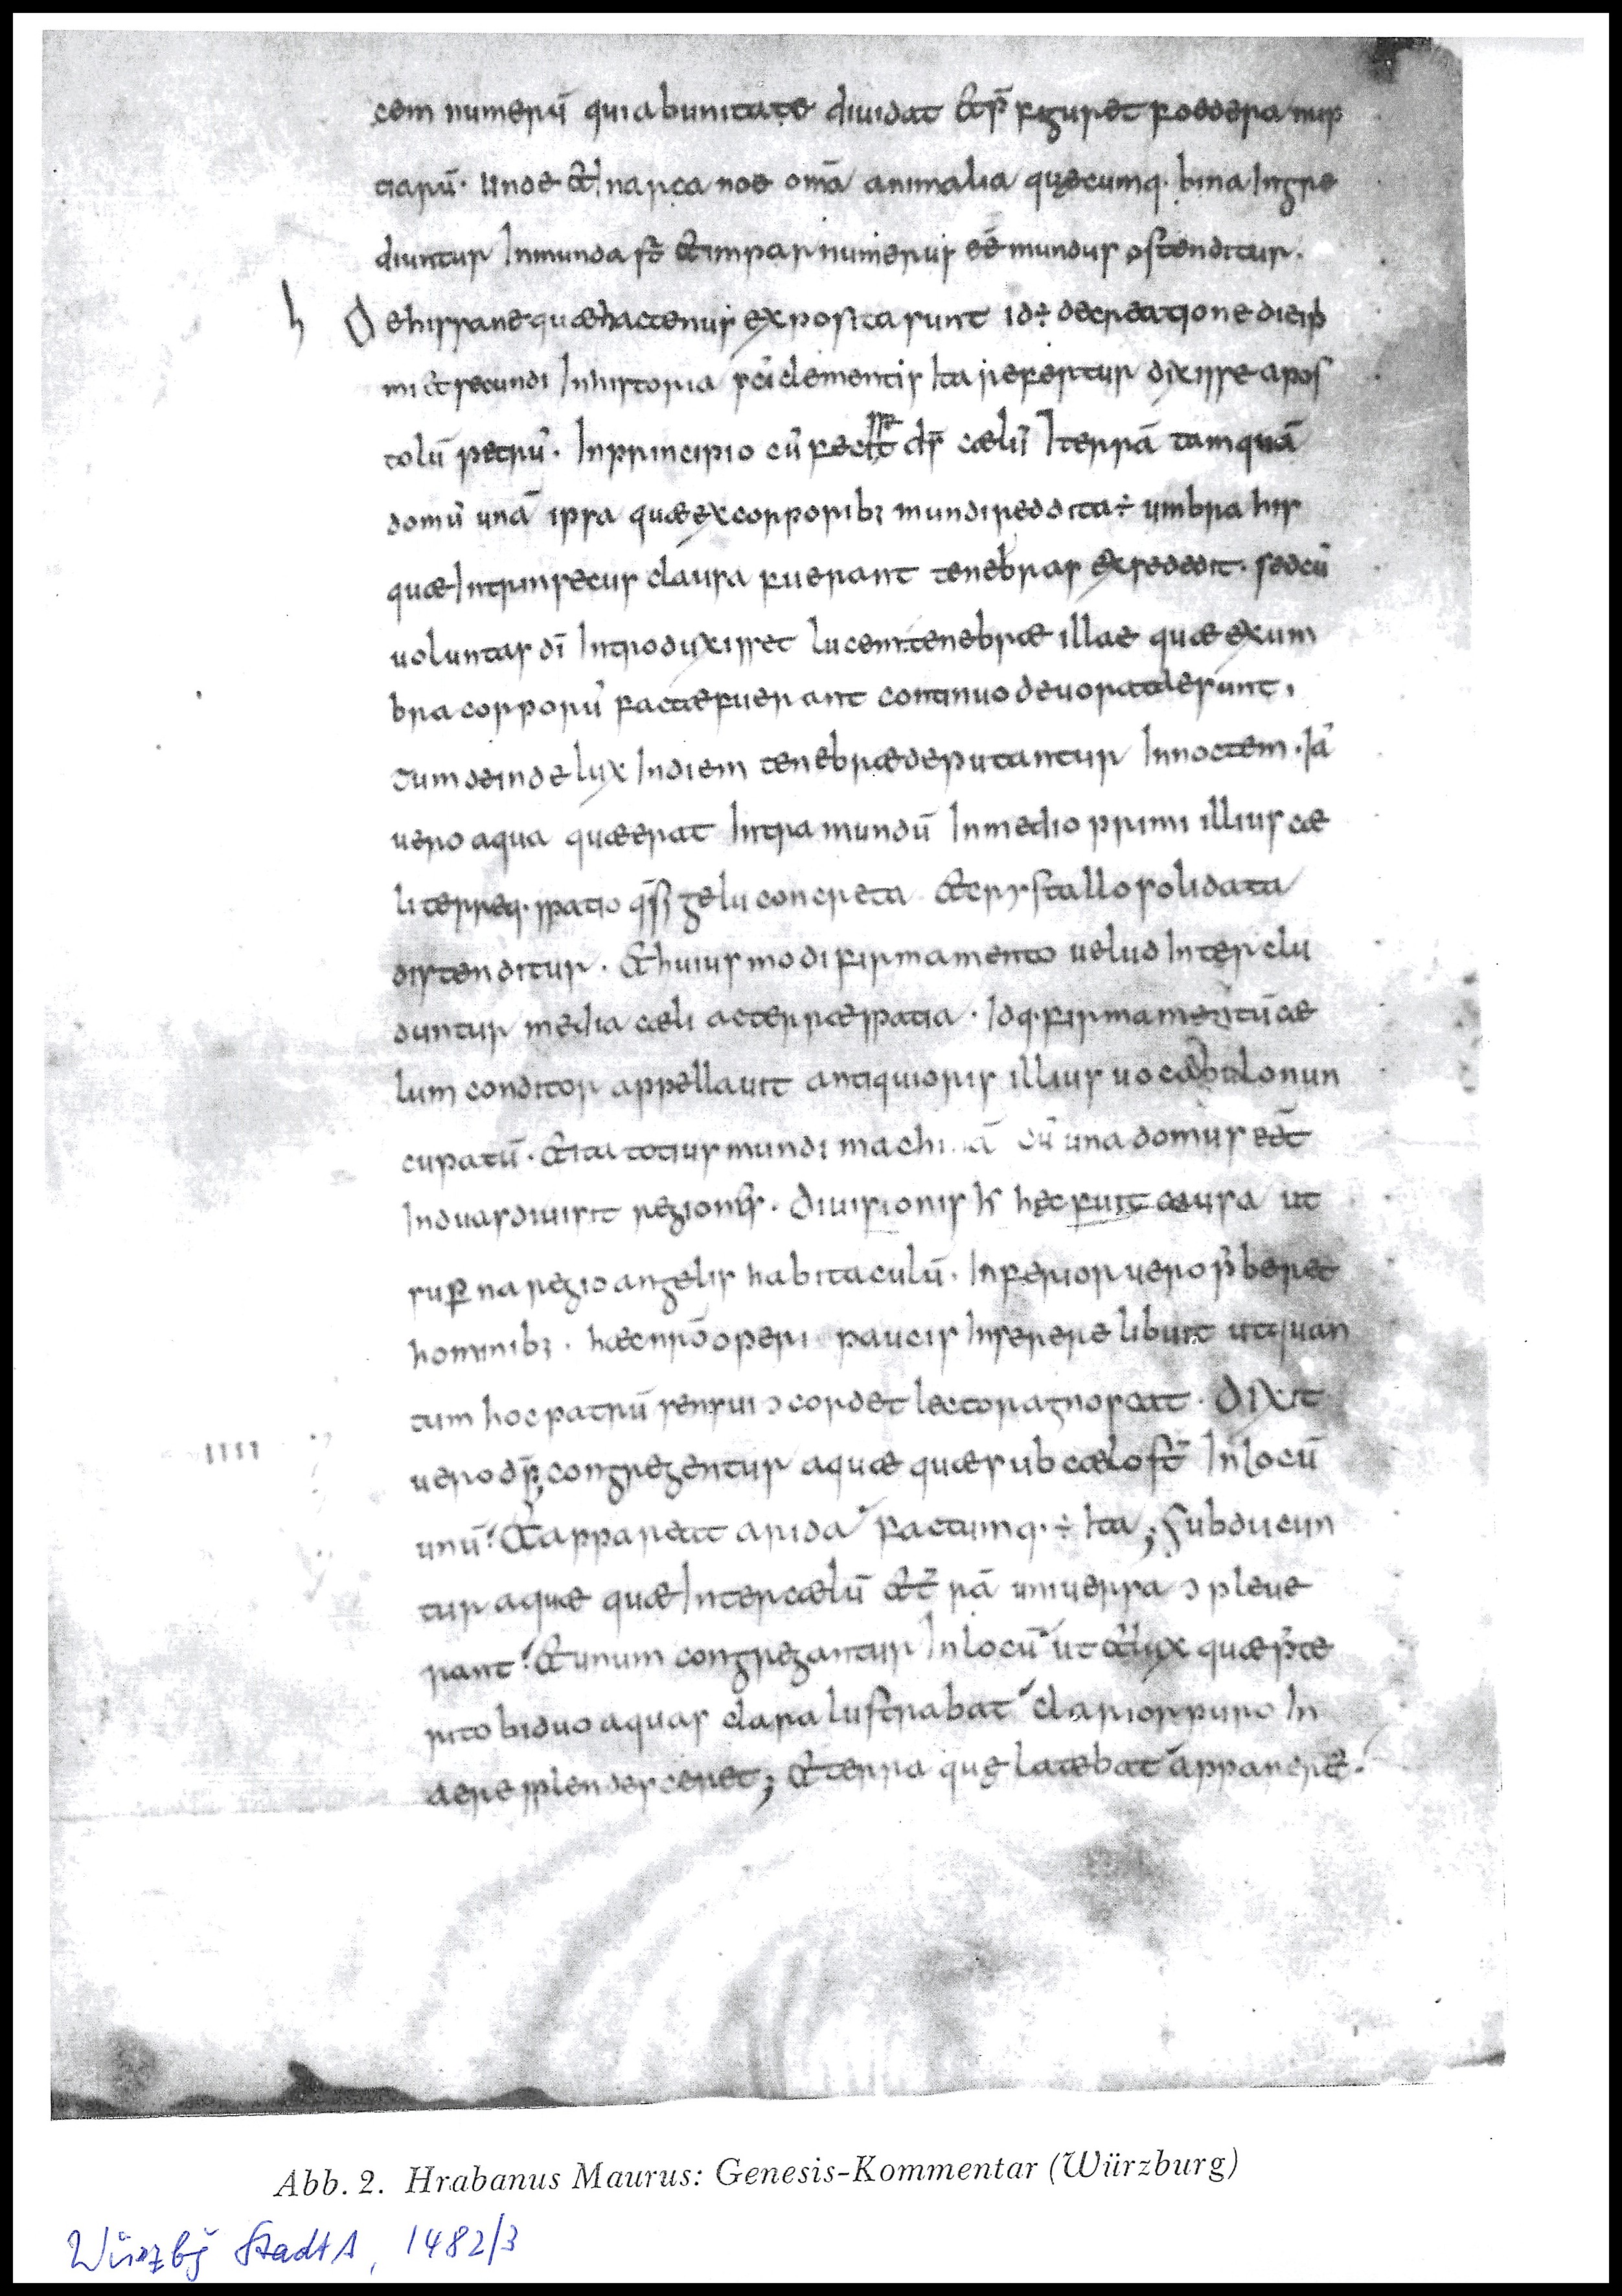 cem numerū qui ab unitate diuidat & p̄figuret foedera nup
tiarū. unde & In arca noe om̄a animalia quęcumq. bina Ingre
diuntur Inmunda s̄t & impar numerus eē mundus ostenditur.
h De his sane quæ hactenus exposita sunt id ÷ de creatione diei p̄
mi & secundi In historia sc̄i clementis Ita refertur dixisse apos
tolū petrū. In principio cū fecisset ds̄ cælū & terrā tamquā
domū unā ipsa quæ ex corporib; mundi reddita ÷ umbra his
quæ Intrinsecus clausa fuerant tenebras ex se dedit. sed cū
voluntas dī Introduxisset lucem. tenebræ illae quæ ex um
bra corporū factæ fuerant continuo deuoratæ sunt.
tum deinde lux In diem tenebræ deputantur In noctem. Iā
uero aqua quæ erat Intra mundū In medio primi illius cæ
li terreq. spatio q̄si gelu concreta & crystallo solidata
distenditur. & huiusmodi firmamento uelud Interclu
duntur media cæli ac terræ spatia. Idq. firmamentū cæ
lum conditor appellauit antiquioris illius uocabulo nun
cupatū. & ita totius mundi machi..ā cū una domus eēt
In duas diuisit regiones. Diuisionis h̄ hęc fuit causa ut
sup̱na regio angelis habitaculū. Inferior uero p̄beret
hominib;. hæc nr̄o operi paucis Inserere libuit ut quan
tum hoc patrū sensui ɔcordet lector agnoscat. Dixit
uero ds̄, congregentur aquæ quæ sub cælo st̄ In locū
unū. & appareat arida factumq. ÷ Ita; Subducun
tur aquæ quæ Inter cælū & t̄rā uniuersa ɔpleue
rant & unum congregantur In locū ut & lux quæ p̄te
rito biduo aquas clara lustrabat clarior puro In
aere splendesceret; & terra quę latebat apparere.
IIII
Abb. 2. Hrabanus Maurus: Genesis-Kommentar (Würzburg)
Würzbg StadtA, 1482/3